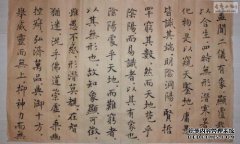 蓋聞二儀有象顯覆載
以含生四時無形潛寒暑以
化物是以窺天鑒地庸愚
皆識其端明陰洞陽賢哲
罕窮其數然而天地苞乎
陰陽而易識者以其有象也
陰陽處乎天地而難窮者
以其無形也故知象顯可徵
雖愚不惑形潛莫覩在智
猶迷況乎佛道崇虛乘幽
控寂弘濟萬品典御十方
舉威靈而無上抑神力而無